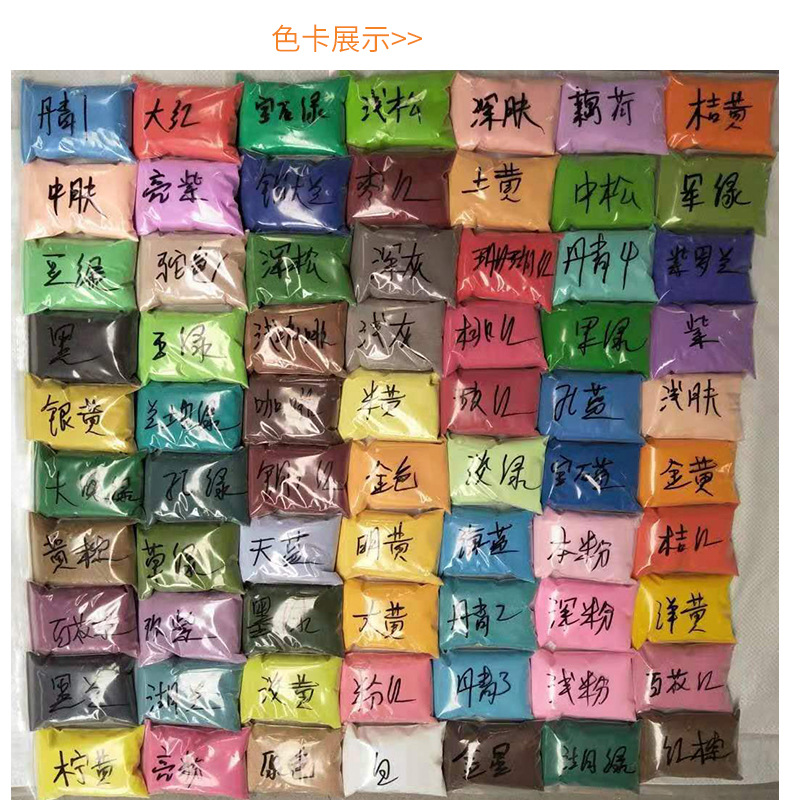 色卡展示>>
丹青1 大红 宝石绿 浅松 深肤 藕荷 桔黄
中肤 亮紫 枣红 土黄 中松 军绿
豆绿 驼色1 深松 深灰 玥瑚红 丹青4 紫罗兰
黑 豆绿 浅咖啡 浅灰 桃红 果绿 紫
银黄 咖啡 米黄 玫红 孔蓝 浅肤
孔绿 金色 淡绿 宝石蓝 金黄
黄棕 草绿 天蓝 明黄 海蓝 桔红
大黄 丹青2 深粉 洋黄
黑兰 湖兰 淡黄 粉红 丹青3 浅粉 百玫红
柠黄 亮粉 原色 白 金星 红棕